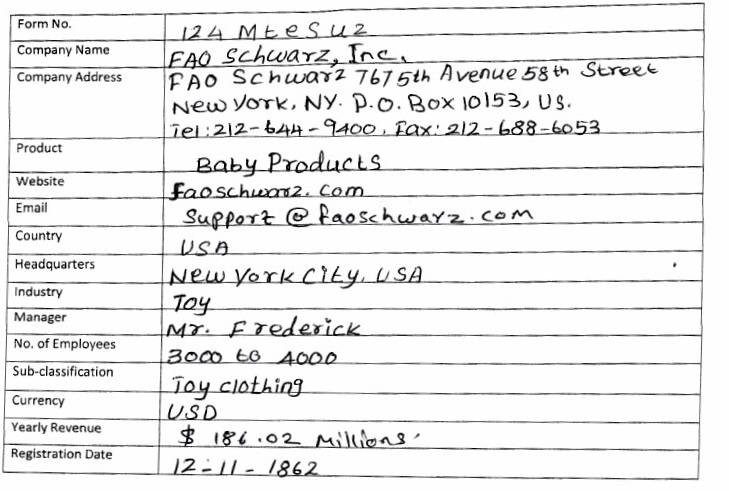 Form No. 124 MtesUz
Company Name FAO Schwarz, Inc.
Company Address FAO Schwarz 767 5th Avenue 58th Street
New York, NY. P.O. Box 10153, US.
Tel: 212-644-9400, Fax: 212-688-6053
Product Baby Products
Website faoschwarz.com
Email Support@faoschwarz.com
Country USA
Headquarters New York City, USA
Industry Toy
Manager Mr. Frederick
No. of Employees 3000 to 4000
Sub-classification Toy clothing
Currency USD
Yearly Revenue $ 186.02 Millions
Registration Date 12-11-1862